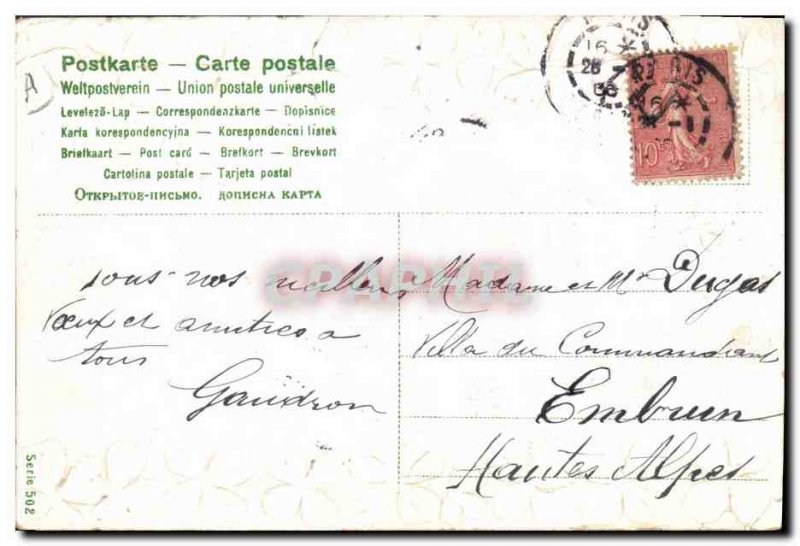 Postkarte — Carte postale
Weltpostverein — Union postale universelle
Levelező-Lap — Correspondenzkarte — Dopisnice
Karta korespondencyjna — Korespondenčni listek
Briefkaart — Post card — Brefkort — Brevkort
Cartolina postale — Tarjeta postal
Открытое-письмо. дописна карта
A
PARIS
10c
Tous nos meilleurs
Vœux et amitiés a
tous
Gaudron
Madame et Mr Dugas
Villa du Commandant
Embrun
Hautes Alpes
Serie 502
CPAPHIL